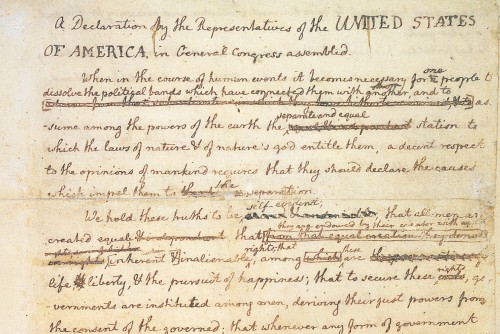 A Declaration by the Representatives of the UNITED STATES
OF AMERICA, in General Congress assembled.
When in the course of human events it becomes necessary for one people to
dissolve the political bands which have connected them with another, and to
as
separate and equal
sume among the powers of the earth the station to
which the laws of nature & of nature's god entitle them, a decent respect
to the opinions of mankind requires that they should declare the causes
which impel them to the separation.
self-evident;
We hold these truths to be that all men are
they are endowed by their creator with
created equal that from that equal creation they
rights; that these
inherent & inalienable among which are
life & liberty, & the pursuit of happiness; that to secure these rights, go
vernments are instituted among men, deriving their just powers from
the consent of the governed; that whenever any form of government